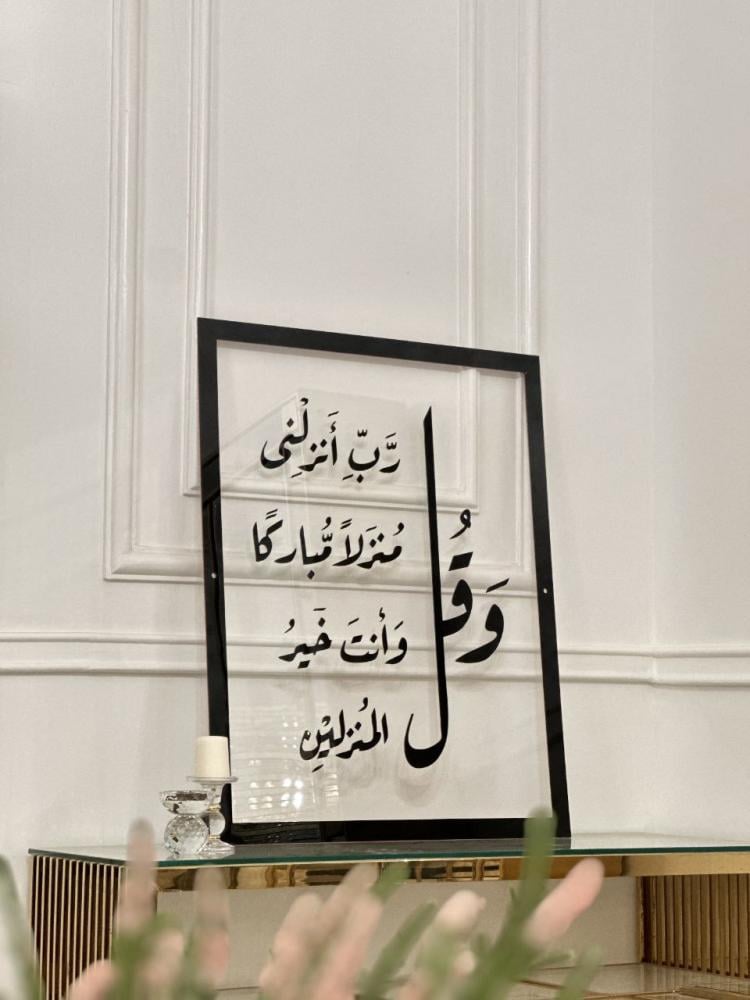 وَقُل
رَّبِّ أَنزِلْنِى
مُنزَلاً مُّبَاركًا
وَأَنتَ خَيرُ
المُنزلِيْنِ